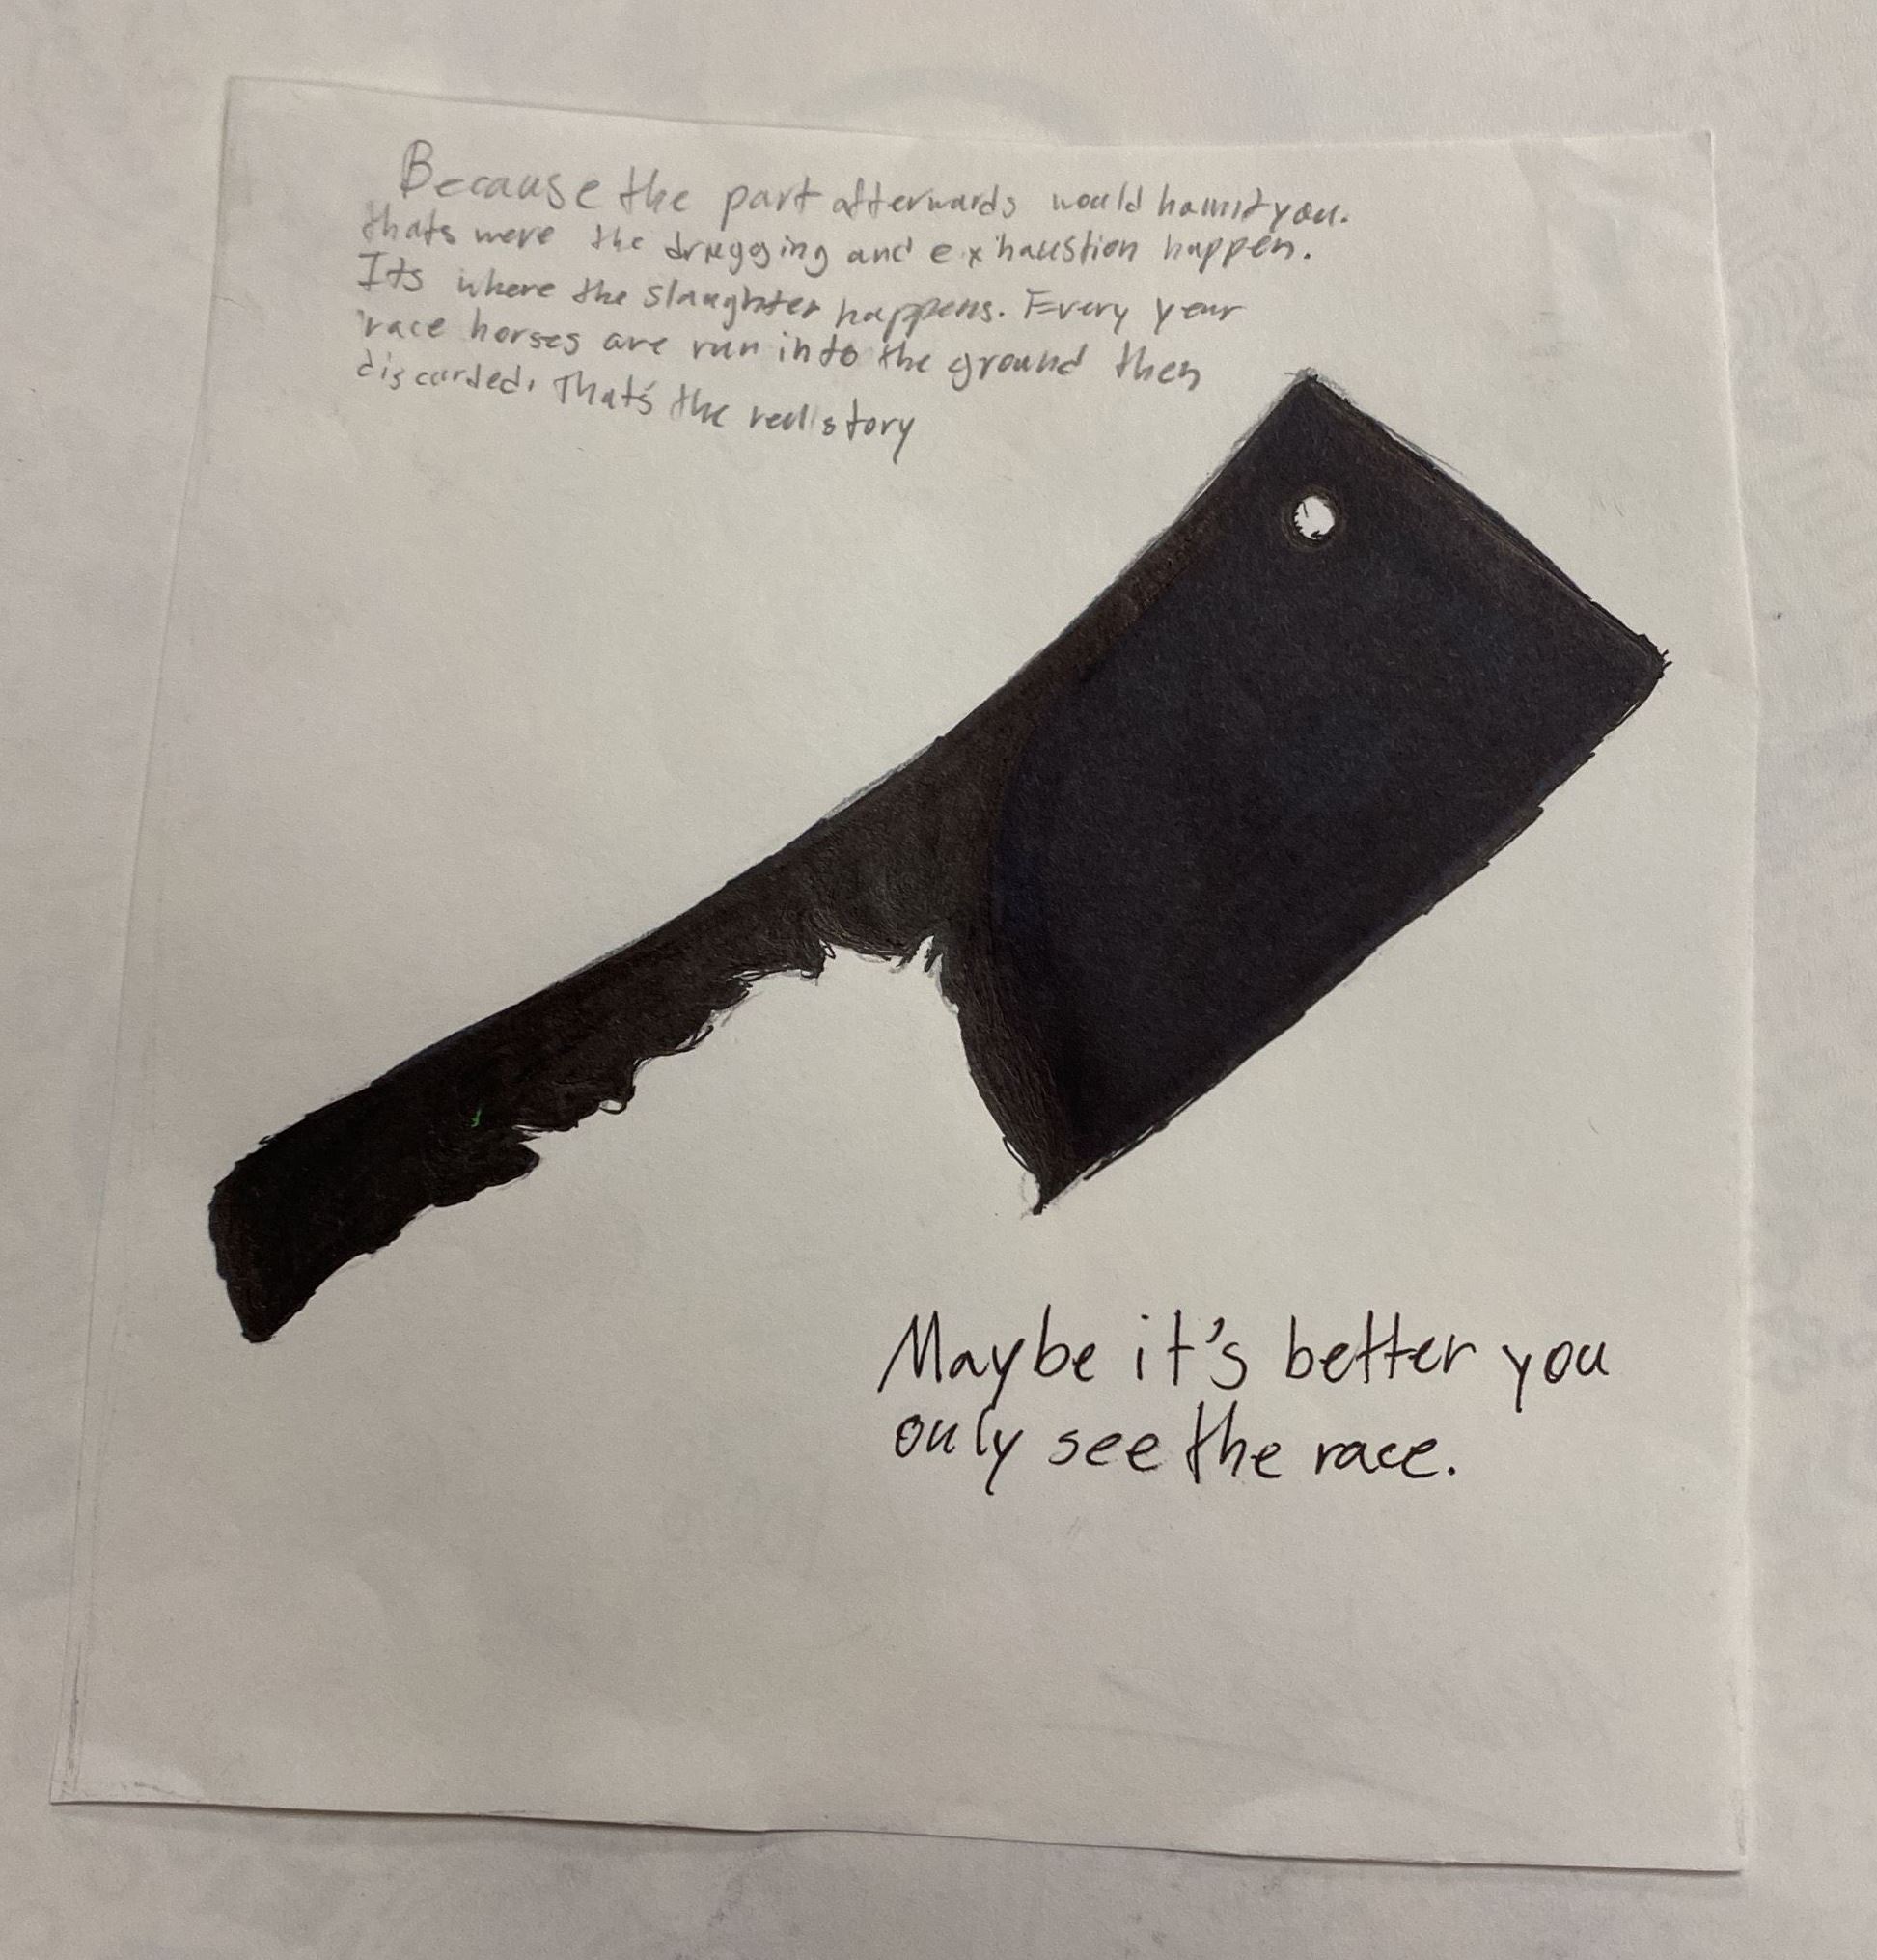 Because the part afterwards would haunt you.
thats were the drugging and exhaustion happen.
Its where the slaughter happens. Every year
race horses are run into the ground then
discarded. That's the real story
Maybe it's better you
only see the race.